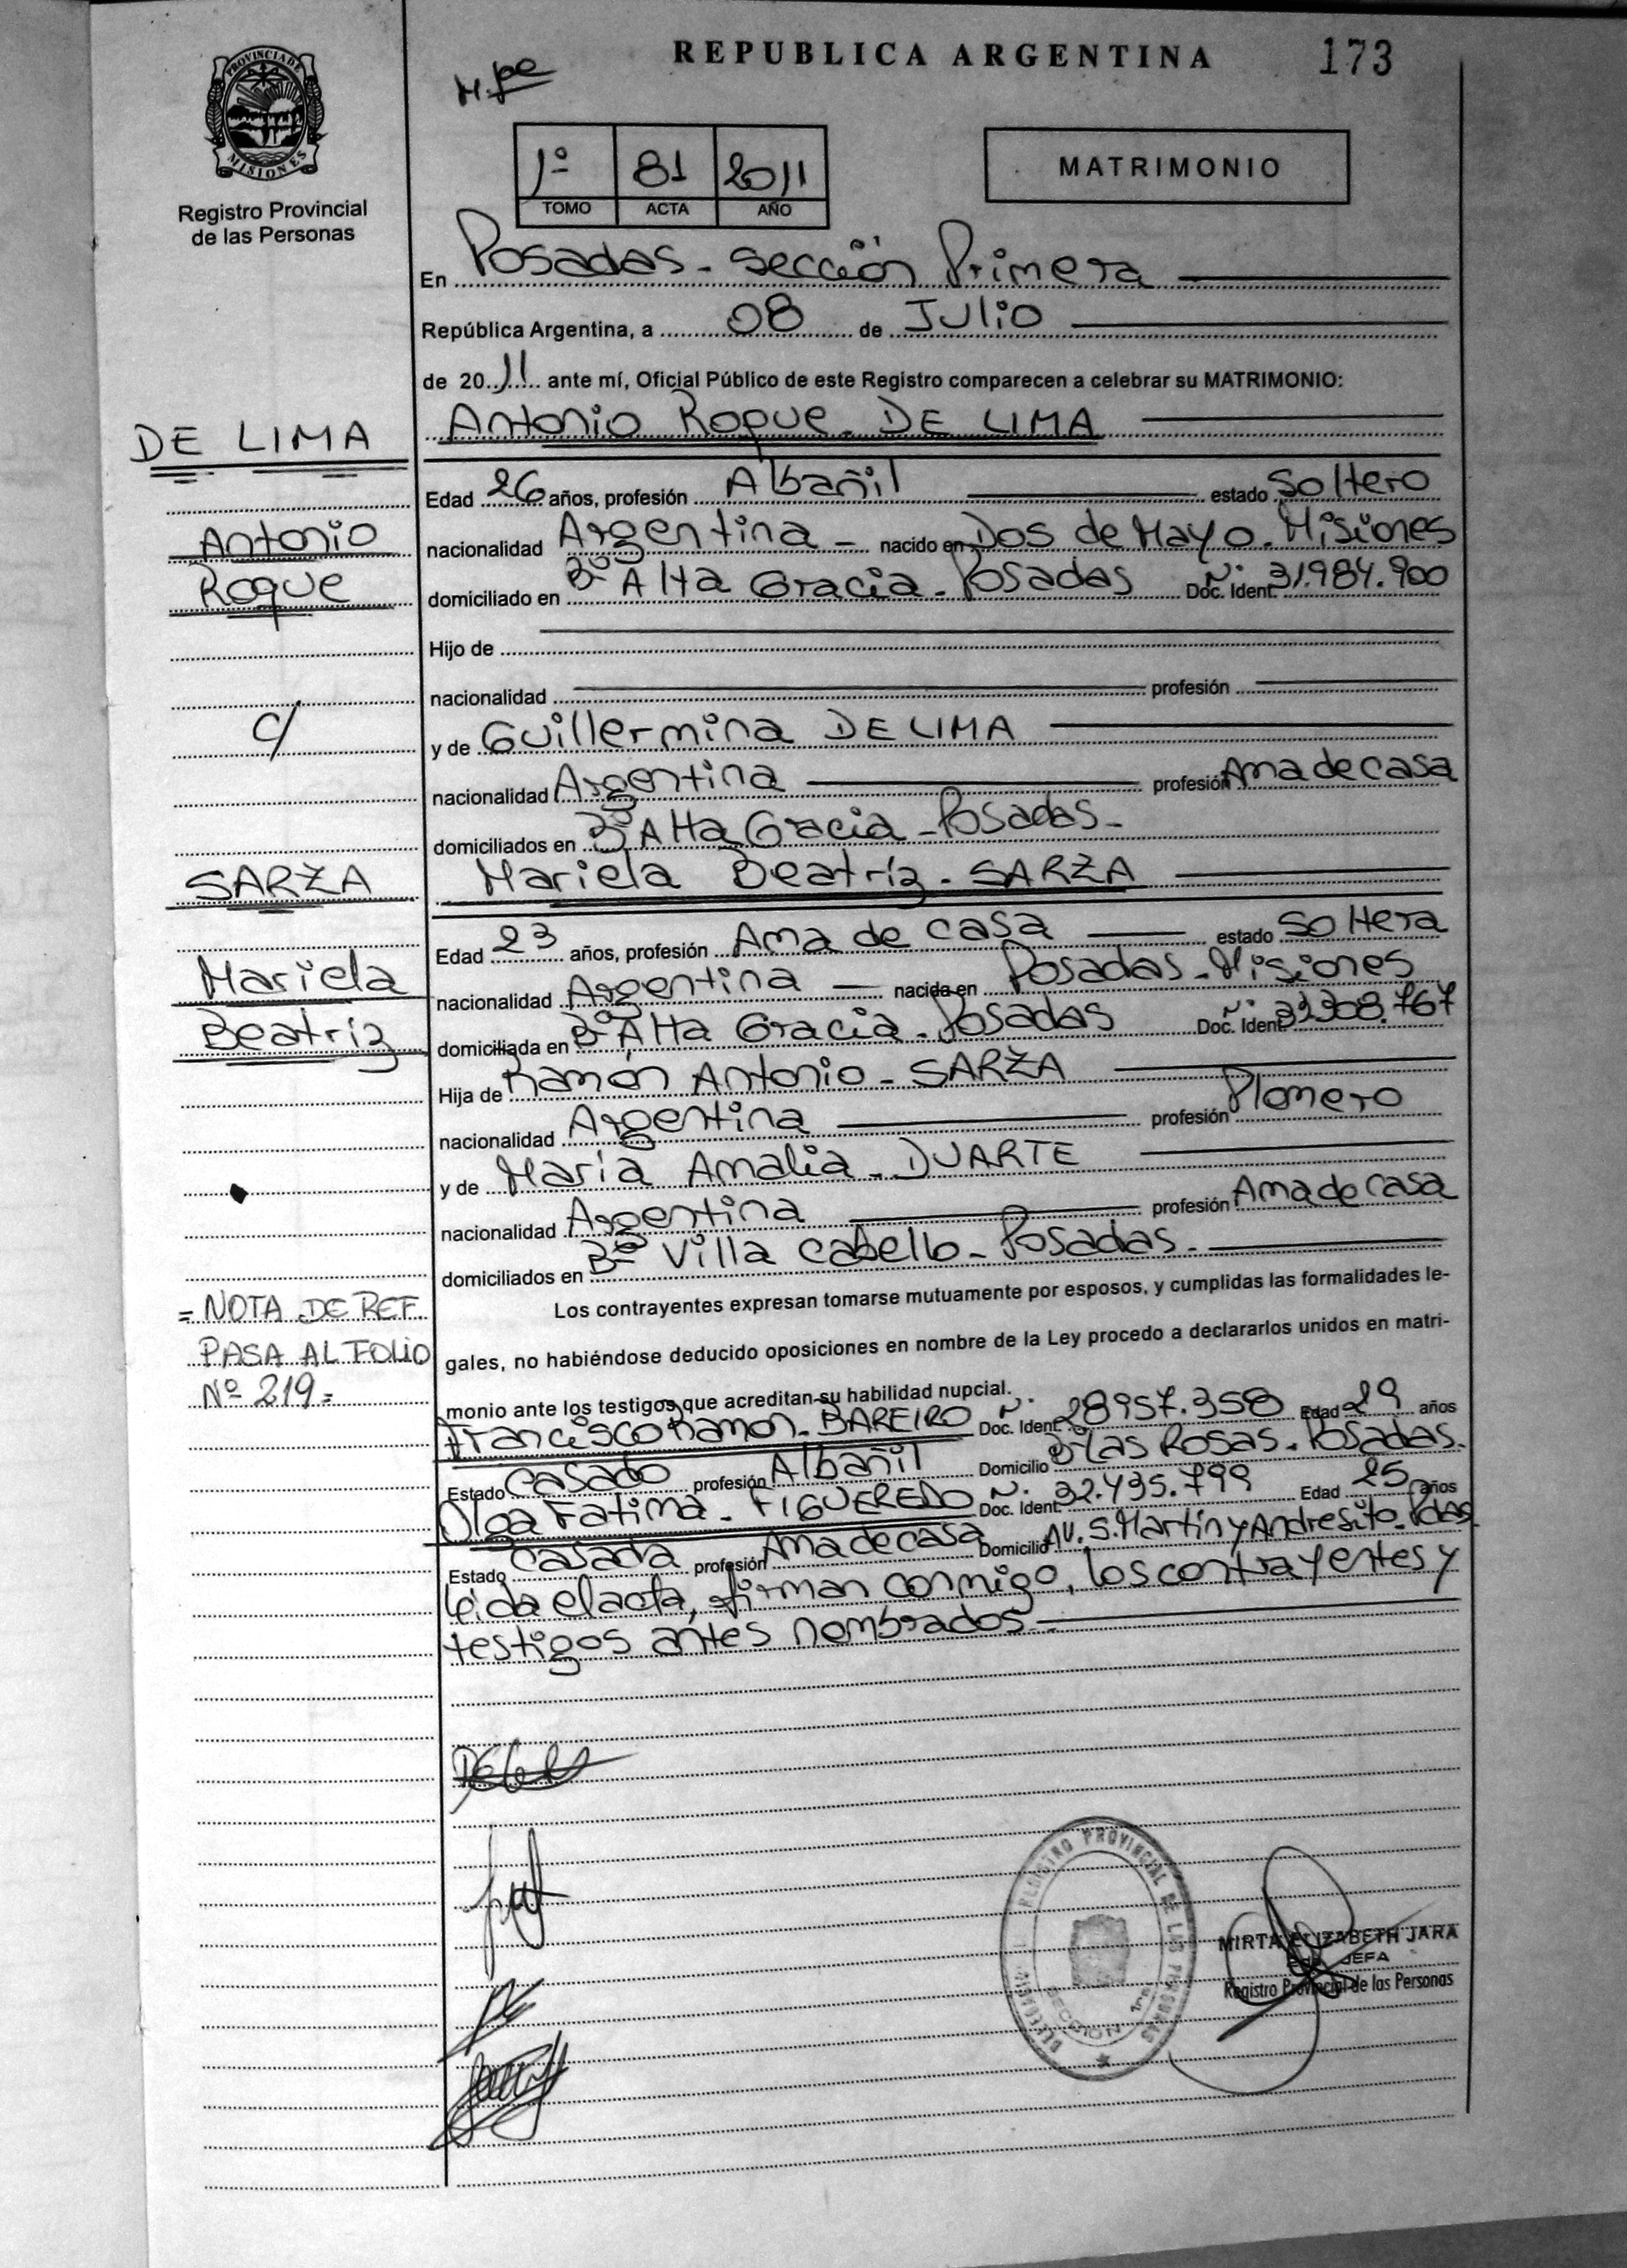 REPUBLICA ARGENTINA 173
PROVINCIA DE
MISIONES
Registro Provincial
de las Personas
MATRIMONIO
1º 81 2011
TOMO ACTA AÑO
En Posadas - sección Primera
República Argentina, a 08 de Julio
de 2011 ante mí, Oficial Público de este Registro comparecen a celebrar su MATRIMONIO:
DE LIMA
Antonio Roque DE LIMA
Edad 26 años, profesión Albañil estado Soltero
Antonio
nacionalidad Argentina - nacido en Dos de Mayo - Misiones
Roque
domiciliado en Bº Alta Gracia - Posadas Doc. Ident. Nº 31.984.900
Hijo de
nacionalidad profesión
c/
y de Guillermina DE LIMA
nacionalidad Argentina profesión Ama de casa
domiciliados en Bº Alta Gracia - Posadas -
SARZA
Mariela Beatríz - SARZA
Edad 23 años, profesión Ama de casa estado Soltera
Mariela
nacionalidad Argentina - nacida en Posadas - Misiones
Beatríz
domiciliada en Bº Alta Gracia - Posadas Doc. Ident. Nº
Hija de Ramón Antonio - SARZA
nacionalidad Argentina profesión Plomero
y de María Amalia - DUARTE
nacionalidad Argentina profesión Ama de casa
domiciliados en Bº Villa Cabello - Posadas -
Los contrayentes expresan tomarse mutuamente por esposos, y cumplidas las formalidades le-
gales, no habiéndose deducido oposiciones en nombre de la Ley procedo a declararlos unidos en matri-
monio ante los testigos que acreditan su habilidad nupcial.
= NOTA DE REF.
PASA AL FOLIO
Nº 219 =
Francisco Ramon - BAREIRO Doc. Ident. Nº 28957.358 Edad 29 años
Estado Casado profesión Albañil Domicilio Bº Las Rosas - Posadas -
Olga Fatima - FIGUEREDO Doc. Ident. Nº 32.435.799 Edad 25 años
Estado Casada profesión Ama de casa Domicilio AV. S. Martín y Andresito - Pdas
Leída el acta, firman conmigo, los contrayentes y
testigos antes nombrados -
REGISTRO PROVINCIAL DE LAS PERSONAS
SECCION 1ra
MIRTA ELIZABETH JARA
JEFA
Registro Provincial de las Personas